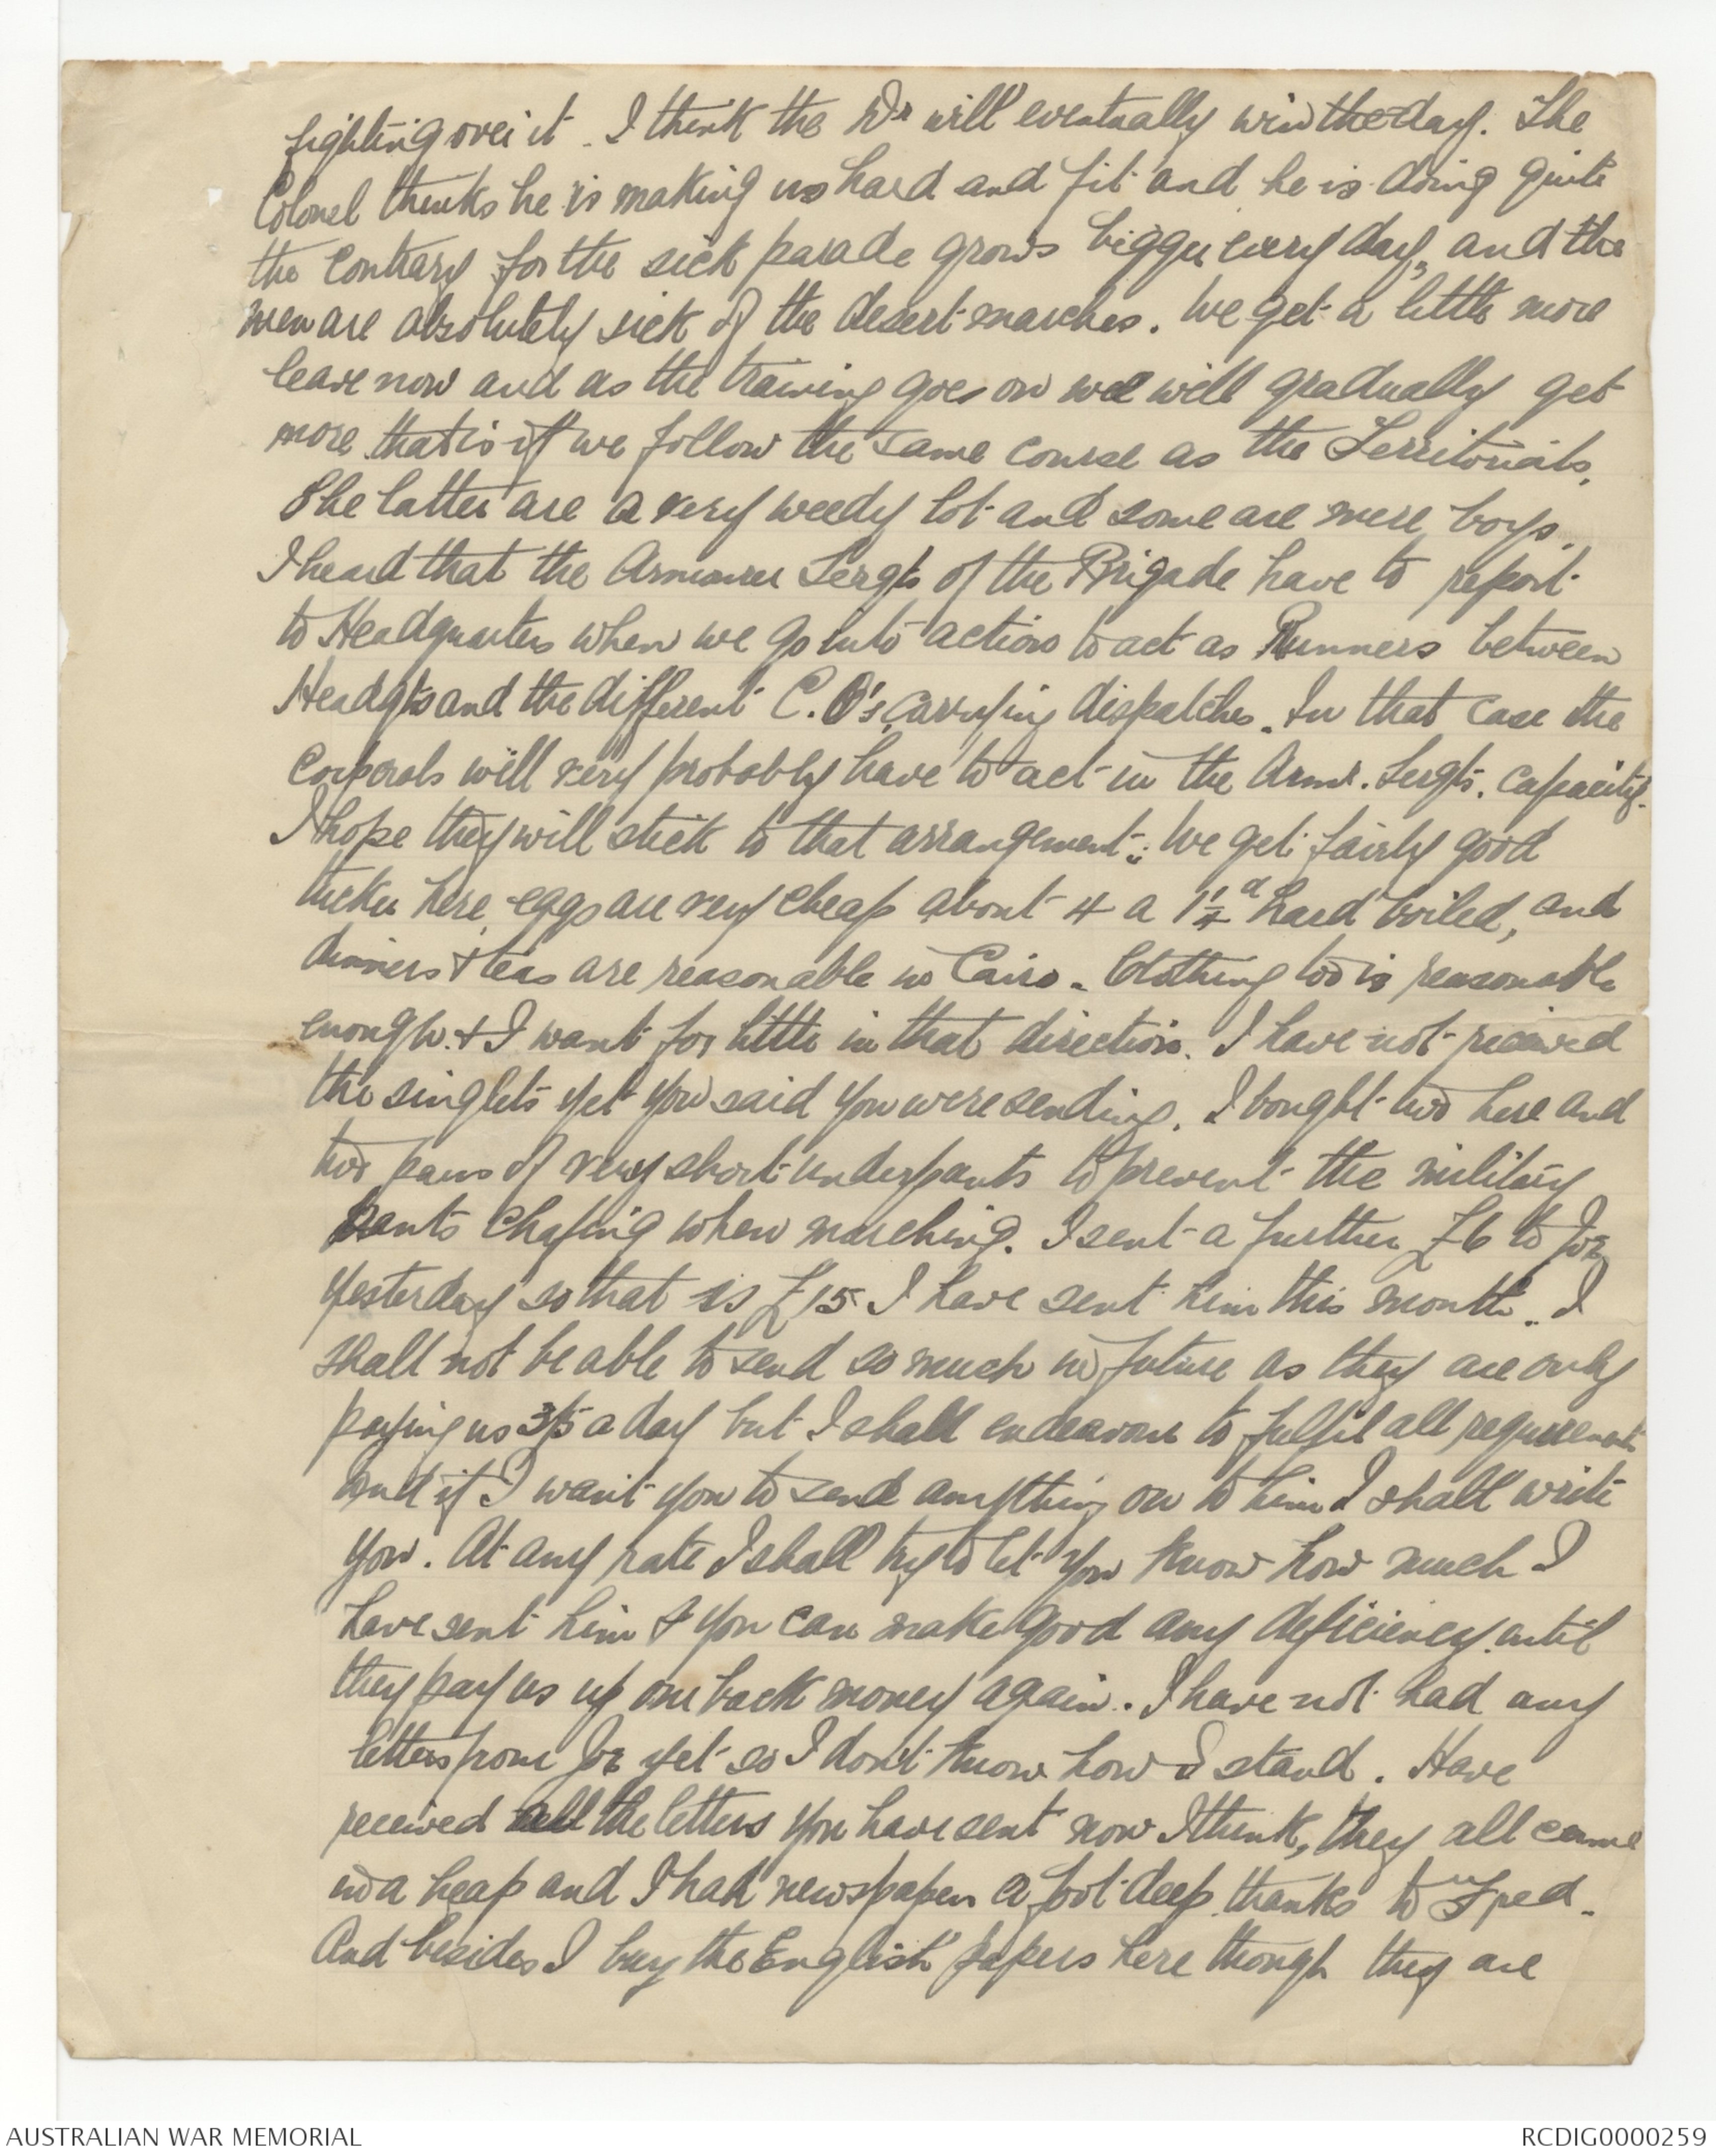 fighting over it. I think the Dr will eventually win the day. The
Colonel thinks he is making us hard and fit and he is doing quite
the contrary for the sick parade grows bigger every day, and the
men are absolutely sick of the desert marches. We get a little more
leave now and as the training goes on we will gradually get
more that is if we follow the same course as the Territorials.
The latter are a very weedy lot and some are mere boys.
I heard that the Armourer Sergts of the Brigade have to report
to Headquarters when we go into action to act as Runners between
Headqts and the different C.O's, carrying dispatches. In that case the
Corporals will very probably have to act in the Armr. Sergts. capacity.
I hope they will stick to that arrangement. We get fairly good
tucker here, eggs are very cheap about 4 a 1¼d hard boiled, and
dinners & teas are reasonable in Cairo. Clothing too is reasonable
enough & I want for little in that direction. I have not received
the singlets yet you said you were sending. I bought two here and
two pairs of very short underpants to prevent the military
pants chafing when marching. I sent a further £6 to Joe
yesterday so that is £15 I have sent him this month. I
shall not be able to send so much in future as they are only
paying us 3/5 a day but I shall endeavour to fulfil all requirements
and if I want you to send anything on to him I shall write
you. At any rate I shall try to let you know how much I
have sent him & you can make good any deficiency until
they pay us up our back money again. I have not had any
letters from Joe yet so I don't know how I stand. Have
received all the letters you have sent now I think, they all came
in a heap and I had newspapers a foot deep thanks to
And besides I buy the English papers here though they are
AUSTRALIAN WAR MEMORIAL
RCDIG0000259